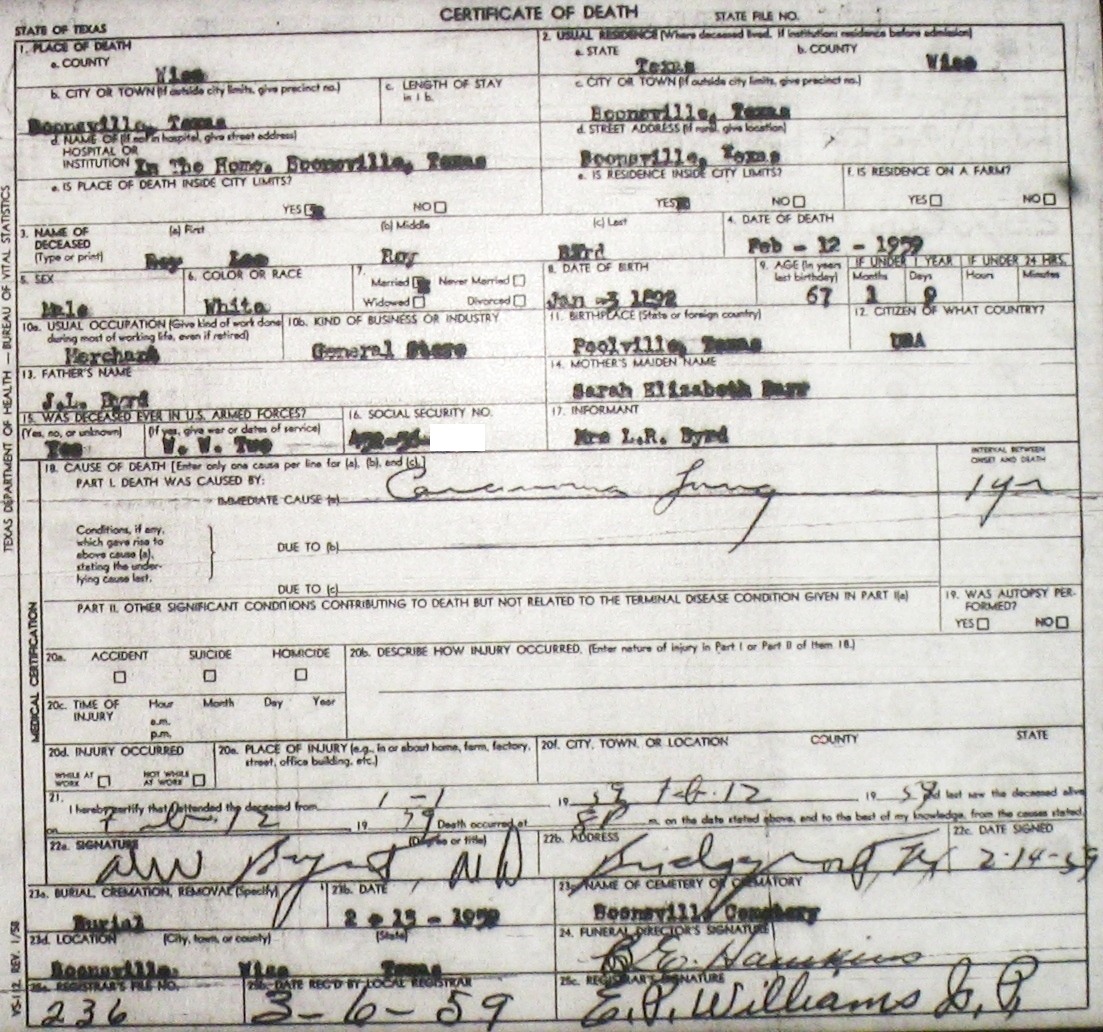 CERTIFICATE OF DEATH STATE FILE NO.
STATE OF TEXAS
1. PLACE OF DEATH
a. COUNTY
Wise
2. USUAL RESIDENCE (Where deceased lived. If institution: residence before admission)
a. STATE b. COUNTY
Texas Wise
b. CITY OR TOWN (If outside city limits, give precinct no.)
Boonsville, Texas
c. LENGTH OF STAY
in 1 b.
c. CITY OR TOWN (If outside city limits, give precinct no.)
Boonsville, Texas
d. NAME OF (If not in hospital, give street address)
HOSPITAL OR
INSTITUTION In The Home, Boonsville, Texas
d. STREET ADDRESS (If rural, give location)
Boonsville, Texas
e. IS PLACE OF DEATH INSIDE CITY LIMITS?
YES NO
e. IS RESIDENCE INSIDE CITY LIMITS?
YES NO
f. IS RESIDENCE ON A FARM?
YES NO
3. NAME OF
DECEASED
(Type or print)
(a) First (b) Middle (c) Last
Lee Roy Byrd
4. DATE OF DEATH
Feb - 12 - 1959
5. SEX
Male
6. COLOR OR RACE
White
7.
Married Never Married
Widowed Divorced
8. DATE OF BIRTH
Jan -3 1892
9. AGE (In years
last birthday)
67
IF UNDER 1 YEAR IF UNDER 24 HRS.
Months Days Hours Minutes
1 9
10a. USUAL OCCUPATION (Give kind of work done
during most of working life, even if retired)
Merchant
10b. KIND OF BUSINESS OR INDUSTRY
General Store
11. BIRTHPLACE (State or foreign country)
Poolville, Texas
12. CITIZEN OF WHAT COUNTRY?
USA
13. FATHER'S NAME
J.L. Byrd
14. MOTHER'S MAIDEN NAME
Sarah Elizabeth
15. WAS DECEASED EVER IN U.S. ARMED FORCES?
(Yes, no, or unknown) (If yes, give war or dates of service)
Yes W. W. Two
16. SOCIAL SECURITY NO.
17. INFORMANT
Mrs L.R. Byrd
18. CAUSE OF DEATH [Enter only one cause per line for (a), (b), and (c).]
PART I. DEATH WAS CAUSED BY:
IMMEDIATE CAUSE (a) Carcinoma Lung
INTERVAL BETWEEN
ONSET AND DEATH
1 yr
Conditions, if any,
which gave rise to
above cause (a),
stating the under-
lying cause last.
DUE TO (b)
DUE TO (c)
PART II. OTHER SIGNIFICANT CONDITIONS CONTRIBUTING TO DEATH BUT NOT RELATED TO THE TERMINAL DISEASE CONDITION GIVEN IN PART I(a)
19. WAS AUTOPSY PER-
FORMED?
YES NO
20a. ACCIDENT SUICIDE HOMICIDE
20b. DESCRIBE HOW INJURY OCCURRED. (Enter nature of injury in Part I or Part II of Item 18.)
20c. TIME OF
INJURY
Hour Month Day Year
a.m.
p.m.
20d. INJURY OCCURRED
WHILE AT
WORK
NOT WHILE
AT WORK
20e. PLACE OF INJURY (e.g., in or about home, farm, factory,
street, office building, etc.)
20f. CITY, TOWN, OR LOCATION COUNTY STATE
21.
I hereby certify that I attended the deceased from 1-1 19 59 Feb. 12 19 59 and last saw the deceased alive
on Feb. 12 19 59 Death occurred at 8P m. on the date stated above, and to the best of my knowledge, from the causes stated.
22a. SIGNATURE (Degree or title)
Bryant MD
22b. ADDRESS
Bridgeport, Tex
22c. DATE SIGNED
2-14-59
23a. BURIAL, CREMATION, REMOVAL (Specify)
Burial
23b. DATE
2 - 13 - 1959
23c. NAME OF CEMETERY OR CREMATORY
Boonsville Cemetery
23d. LOCATION (City, town, or county) (State)
Boonsville Wise Texas
24. FUNERAL DIRECTOR'S SIGNATURE
R.E. Hawkins
25a. REGISTRAR'S FILE NO.
236
25b. DATE REC'D BY LOCAL REGISTRAR
3-6-59
25c. REGISTRAR'S SIGNATURE
E.P. Williams J.P.
TEXAS DEPARTMENT OF HEALTH — BUREAU OF VITAL STATISTICS
MEDICAL CERTIFICATION
REV. 1/58